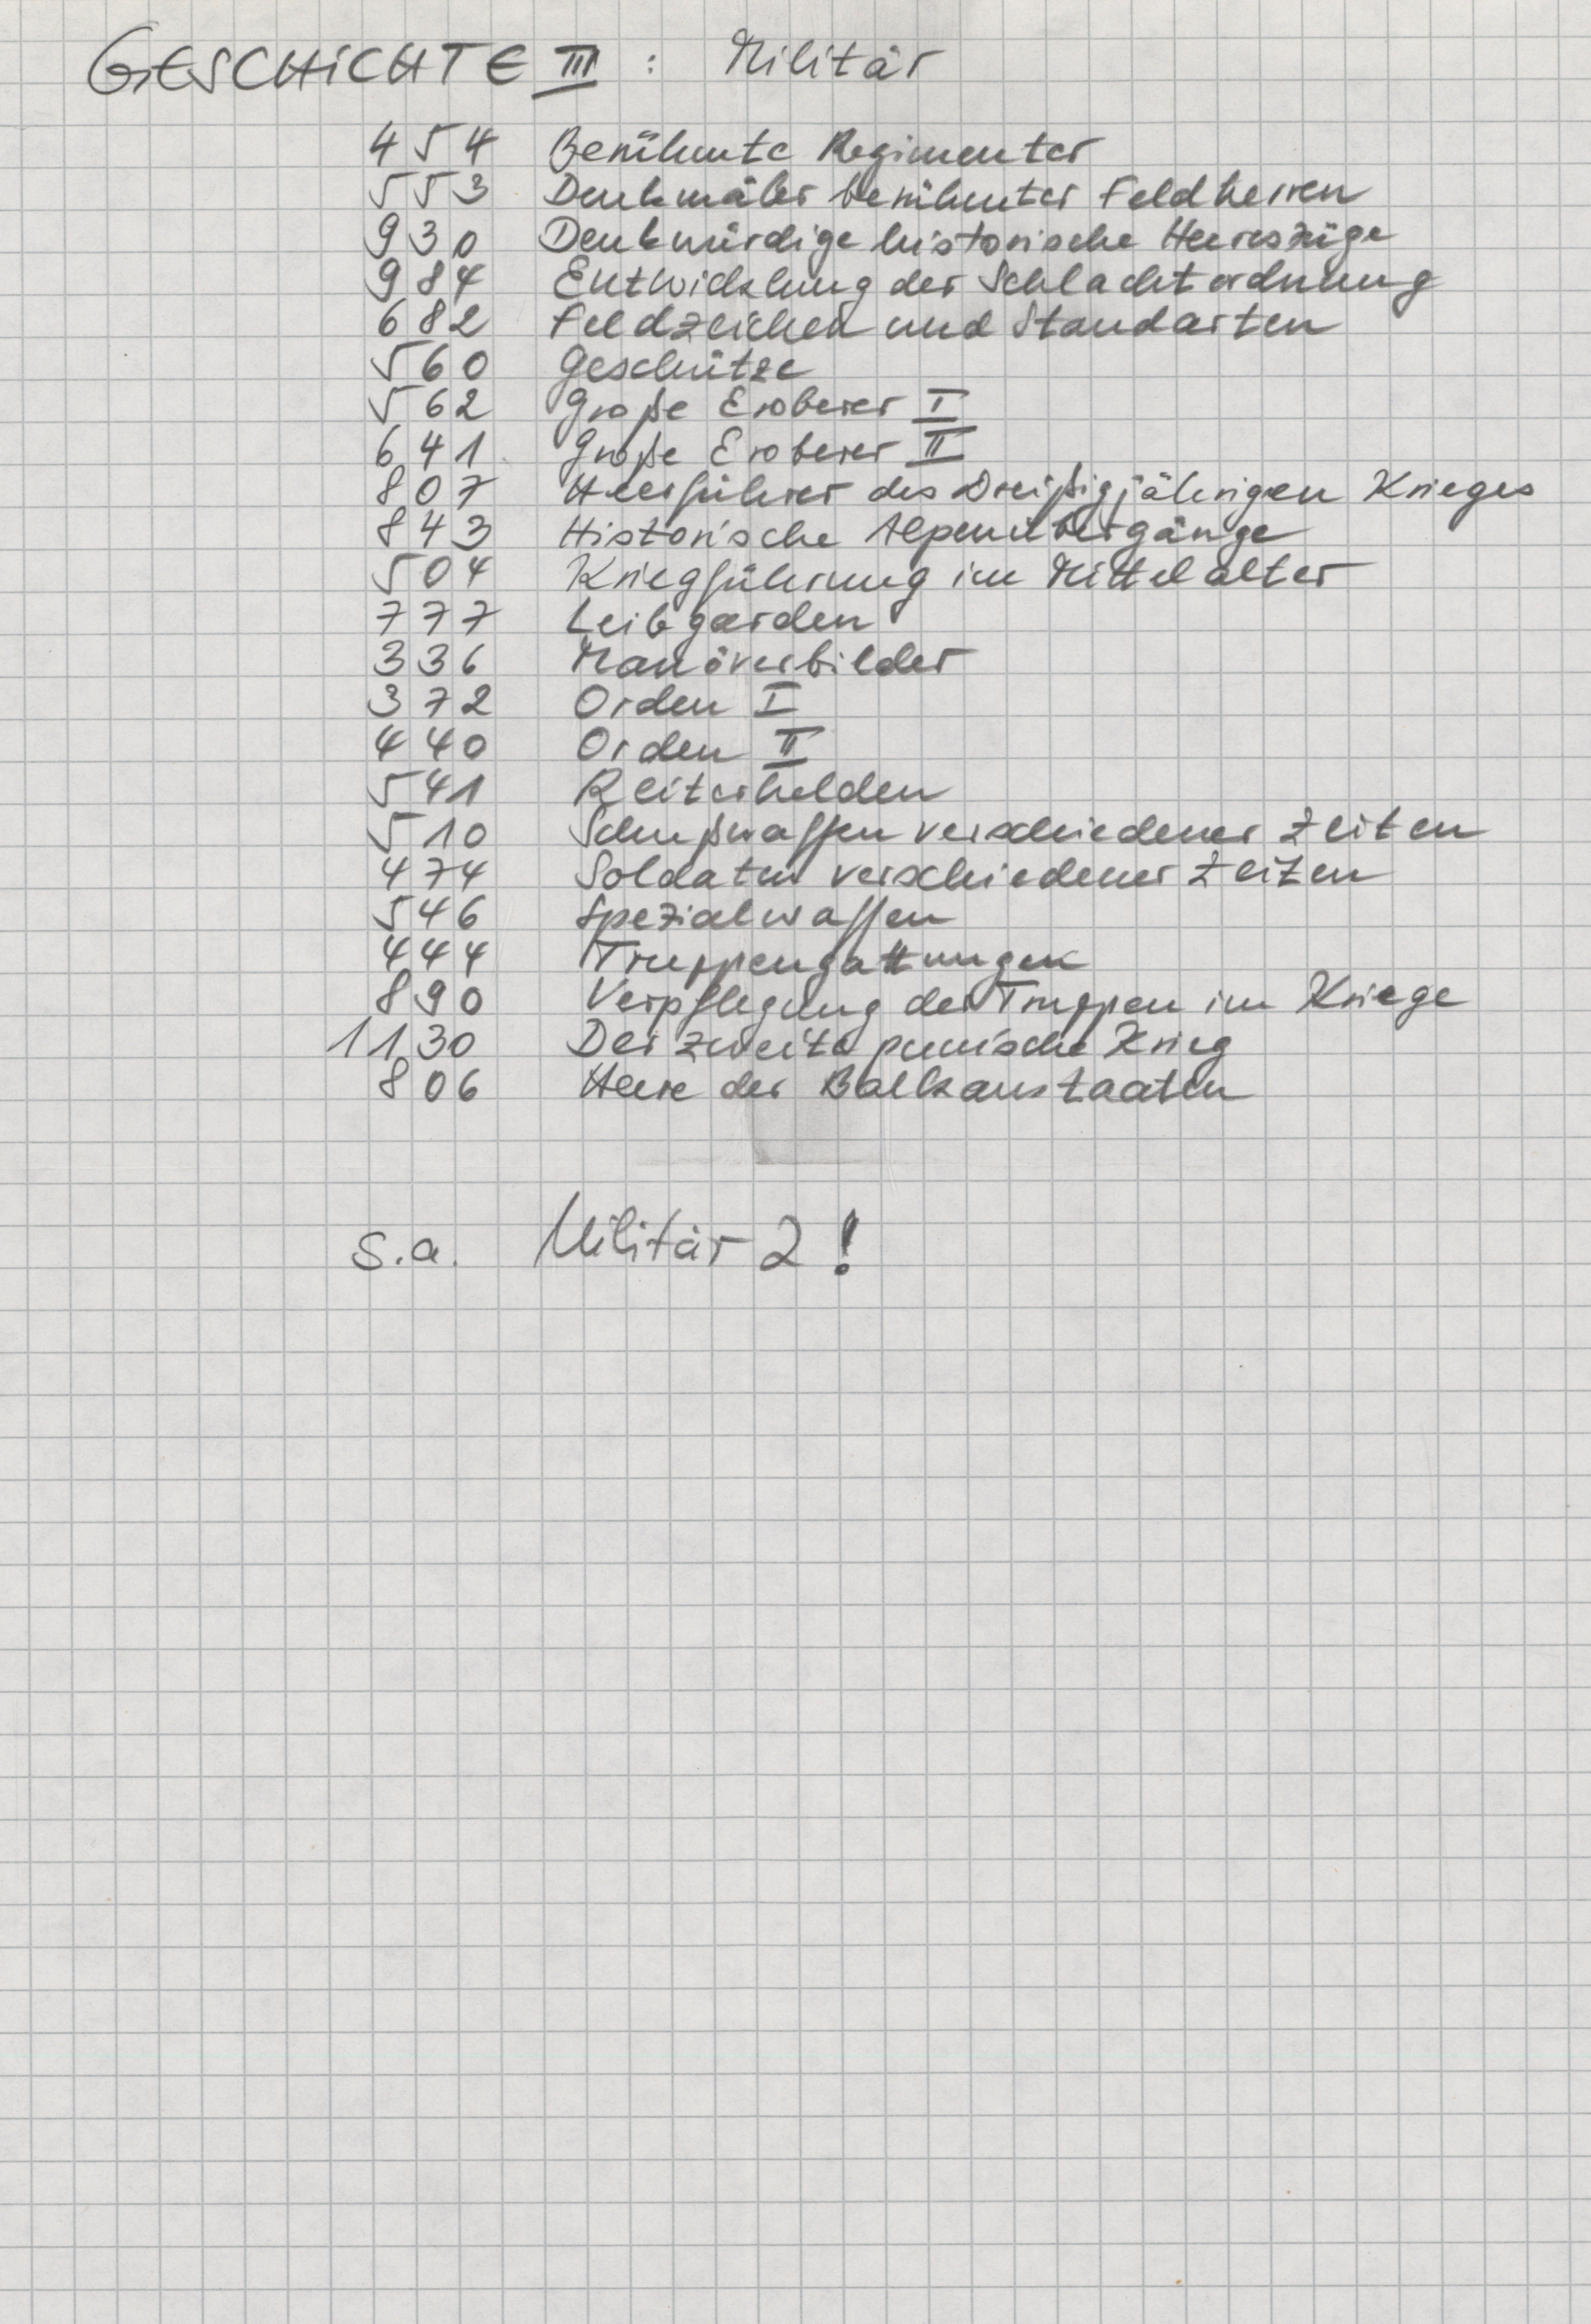 GESCHICHTE III : Militär
454 Berühmte Regimenter
553 Denkmäler berühmter Feldherren
930 Denkwürdige historische Heereszüge
984 Entwicklung der Schlachtordnung
682 Feldzeichen und Standarten
560 Geschütze
562 Große Eroberer I
641 Große Eroberer II
807 Heerführer des Dreißigjährigen Krieges
843 Historische Alpenübergänge
504 Kriegführung im Mittelalter
777 Leibgarden
336 Manöverbilder
372 Orden I
440 Orden II
541 Reiterhelden
510 Schußwaffen verschiedener Zeiten
474 Soldaten verschiedener Zeiten
546 Spezialwaffen
444 Truppengattungen
890 Verpflegung der Truppen im Kriege
1130 Der zweite punische Krieg
806 Heere der Balkanstaaten
s.a. Militär 2!